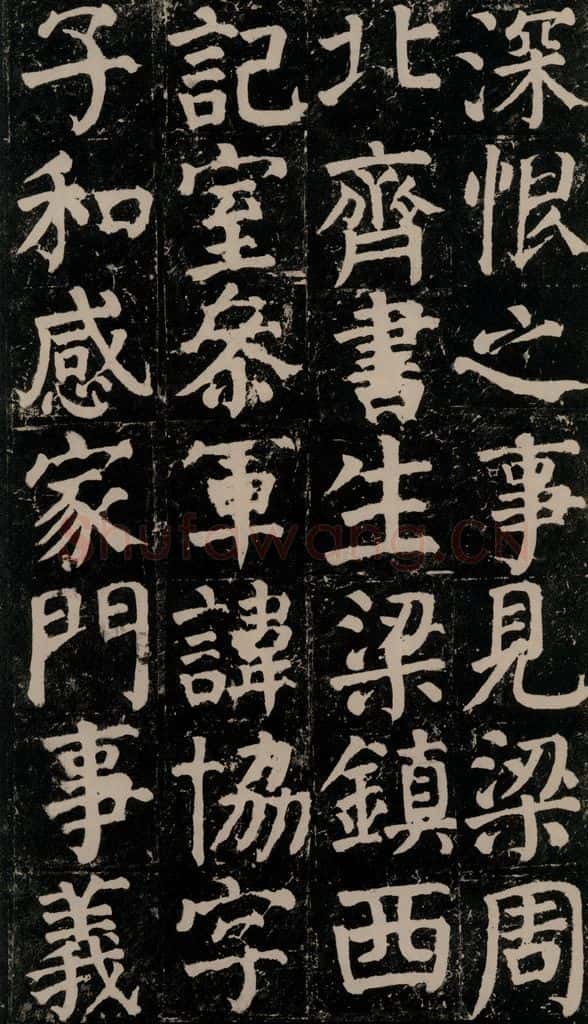 深恨之事見梁周
北齊書生梁鎮西
記室叅軍諱協字
子和感家門事義
shufawang.cn